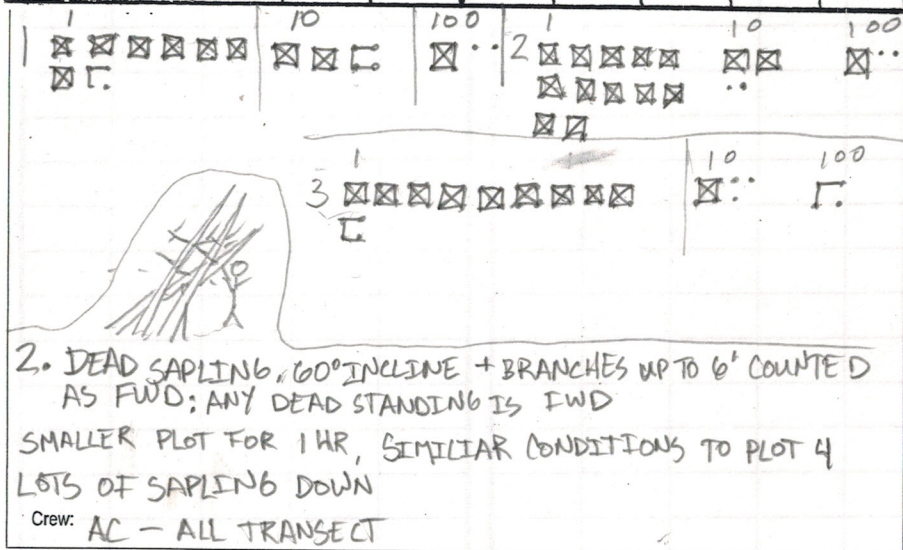 1 1 10 100 2 1 10 100
3 1 10 100
2. DEAD SAPLING, 60° INCLINE + BRANCHES UP TO 6' COUNTED
AS FWD; ANY DEAD STANDING IS FWD
SMALLER PLOT FOR 1 HR, SIMILIAR CONDITIONS TO PLOT 4
LOTS OF SAPLING DOWN
Crew: AC - ALL TRANSECT